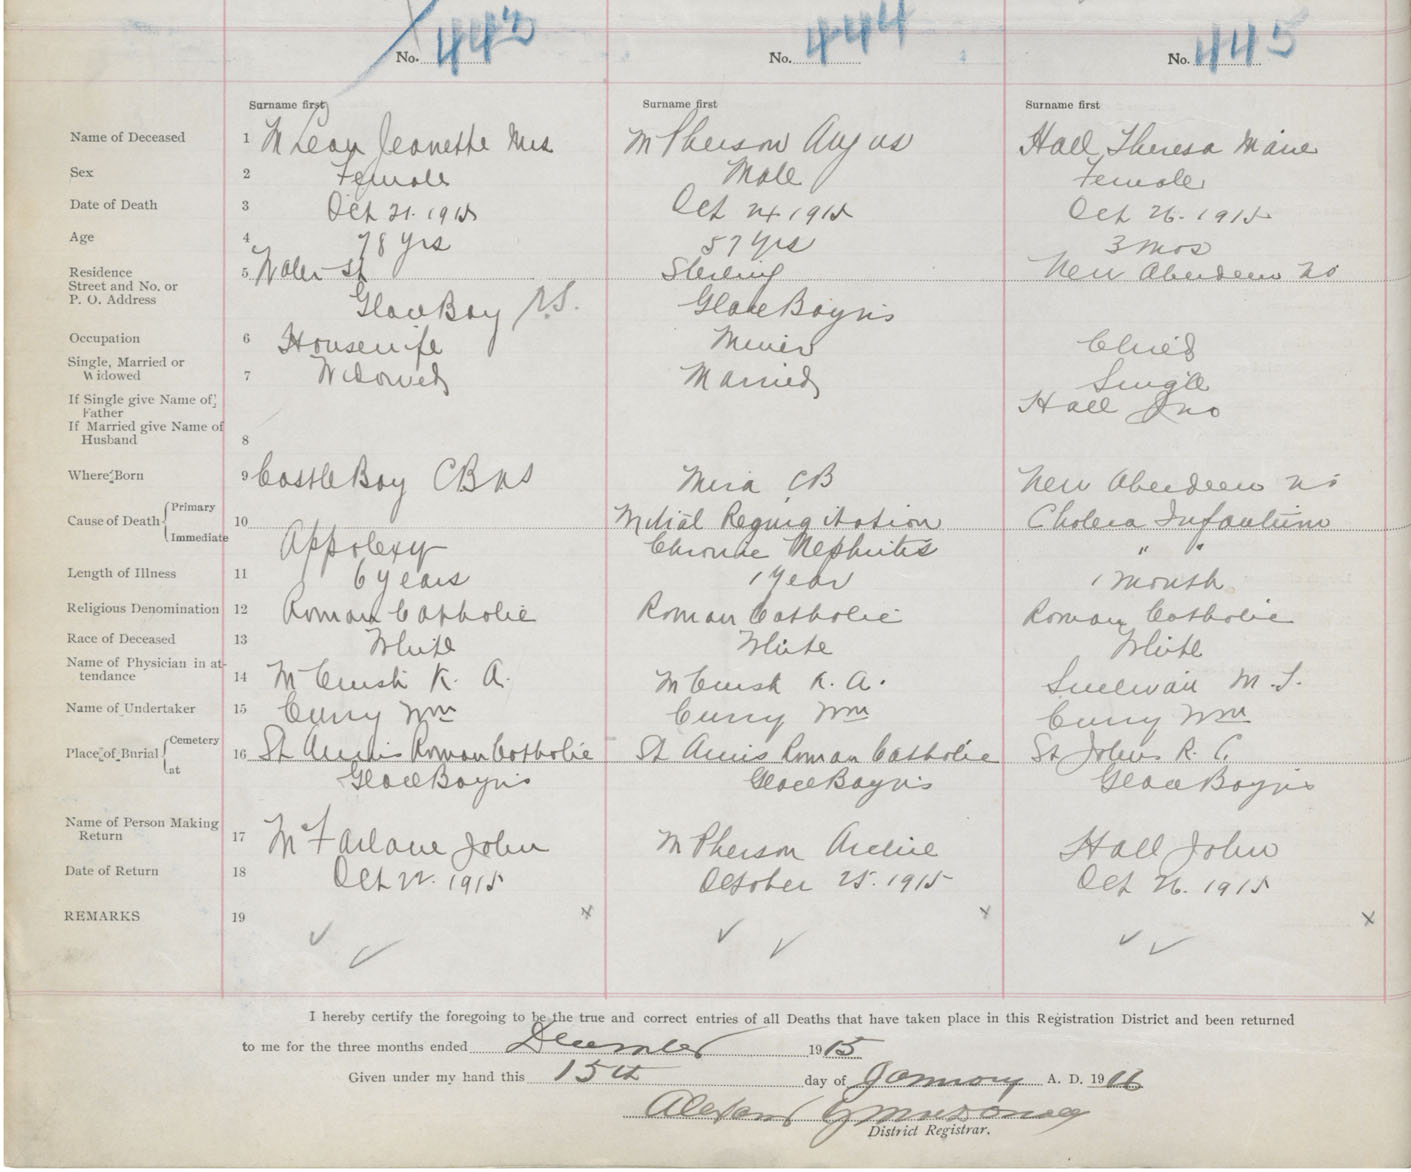 No. 443 No. 444 No. 445
Surname first Surname first Surname first
Name of Deceased 1 McLean Jeanette Mrs McPherson Angus Hall Theresa Marie
Sex 2 Female Male Female
Date of Death 3 Oct 21. 1915 Oct 24. 1915 Oct 26. 1915
Age 4 78 yrs 57 yrs 3 mos
Residence 5 Water St Sterling New Aberdeen NS
Street and No. or
P. O. Address Glace Bay N.S. Glace Bay NS
Occupation 6 Housewife Miner Child
Single, Married or
Widowed 7 Widowed Married Single
If Single give Name of Father Hall Jno
If Married give Name of
Husband 8
Where Born 9 Castle Bay CB NS Mira CB New Aberdeen NS
Cause of Death Primary 10 Mitral Regurgitation Cholera Infantum
Immediate Appolexy Chronic Nephritis " "
Length of Illness 11 6 years 1 year 1 month
Religious Denomination 12 Roman Catholic Roman Catholic Roman Catholic
Race of Deceased 13 White White White
Name of Physician in at-
tendance 14 McCuish K. A. McCuish K. A. Sullivan M. T.
Name of Undertaker 15 Curry Wm Curry Wm Curry Wm
Place of Burial Cemetery 16 St Anns Roman Catholic St Anns Roman Catholic St Johns R. C.
at Glace Bay NS Glace Bay NS Glace Bay NS
Name of Person Making
Return 17 McFarlane John McPherson Archie Hall John
Date of Return 18 Oct 22. 1915 October 25. 1915 Oct 26. 1915
REMARKS 19 x x x
I hereby certify the foregoing to be the true and correct entries of all Deaths that have taken place in this Registration District and been returned
to me for the three months ended December 1915
Given under my hand this 15th day of January A. D. 1916
District Registrar.